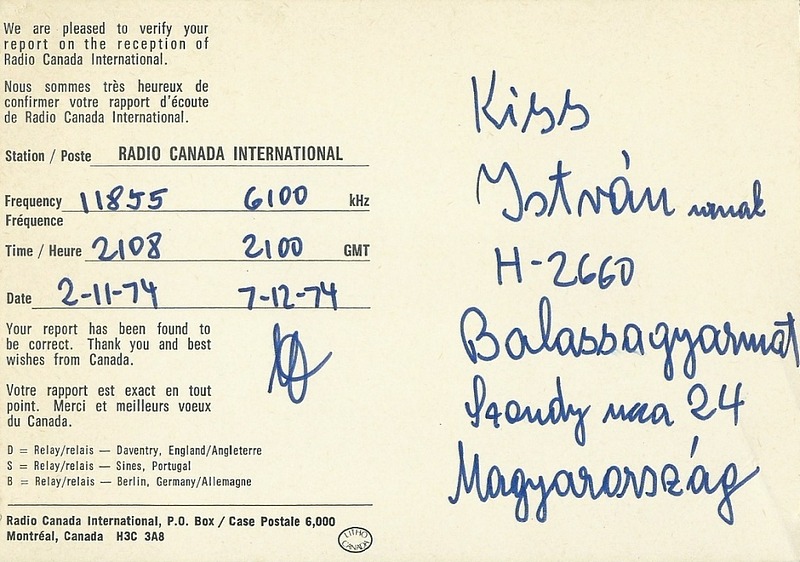 We are pleased to verify your
report on the reception of
Radio Canada International.
Nous sommes très heureux de
confirmer votre rapport d'écoute
de Radio Canada International.
Station / Poste RADIO CANADA INTERNATIONAL
Frequency 11855 6100 kHz
Fréquence
Time / Heure 2108 2100 GMT
Date 2-11-74 7-12-74
Your report has been found to
be correct. Thank you and best
wishes from Canada.
Votre rapport est exact en tout
point. Merci et meilleurs voeux
du Canada.
D = Relay/relais — Daventry, England/Angleterre
S = Relay/relais — Sines, Portugal
B = Relay/relais — Berlin, Germany/Allemagne
Radio Canada International, P.O. Box / Case Postale 6,000
Montréal, Canada H3C 3A8
LITHO
CANADA
Kiss
István urnak
H-2660
Balassagyarmat
Szondy utca 24
Magyarország